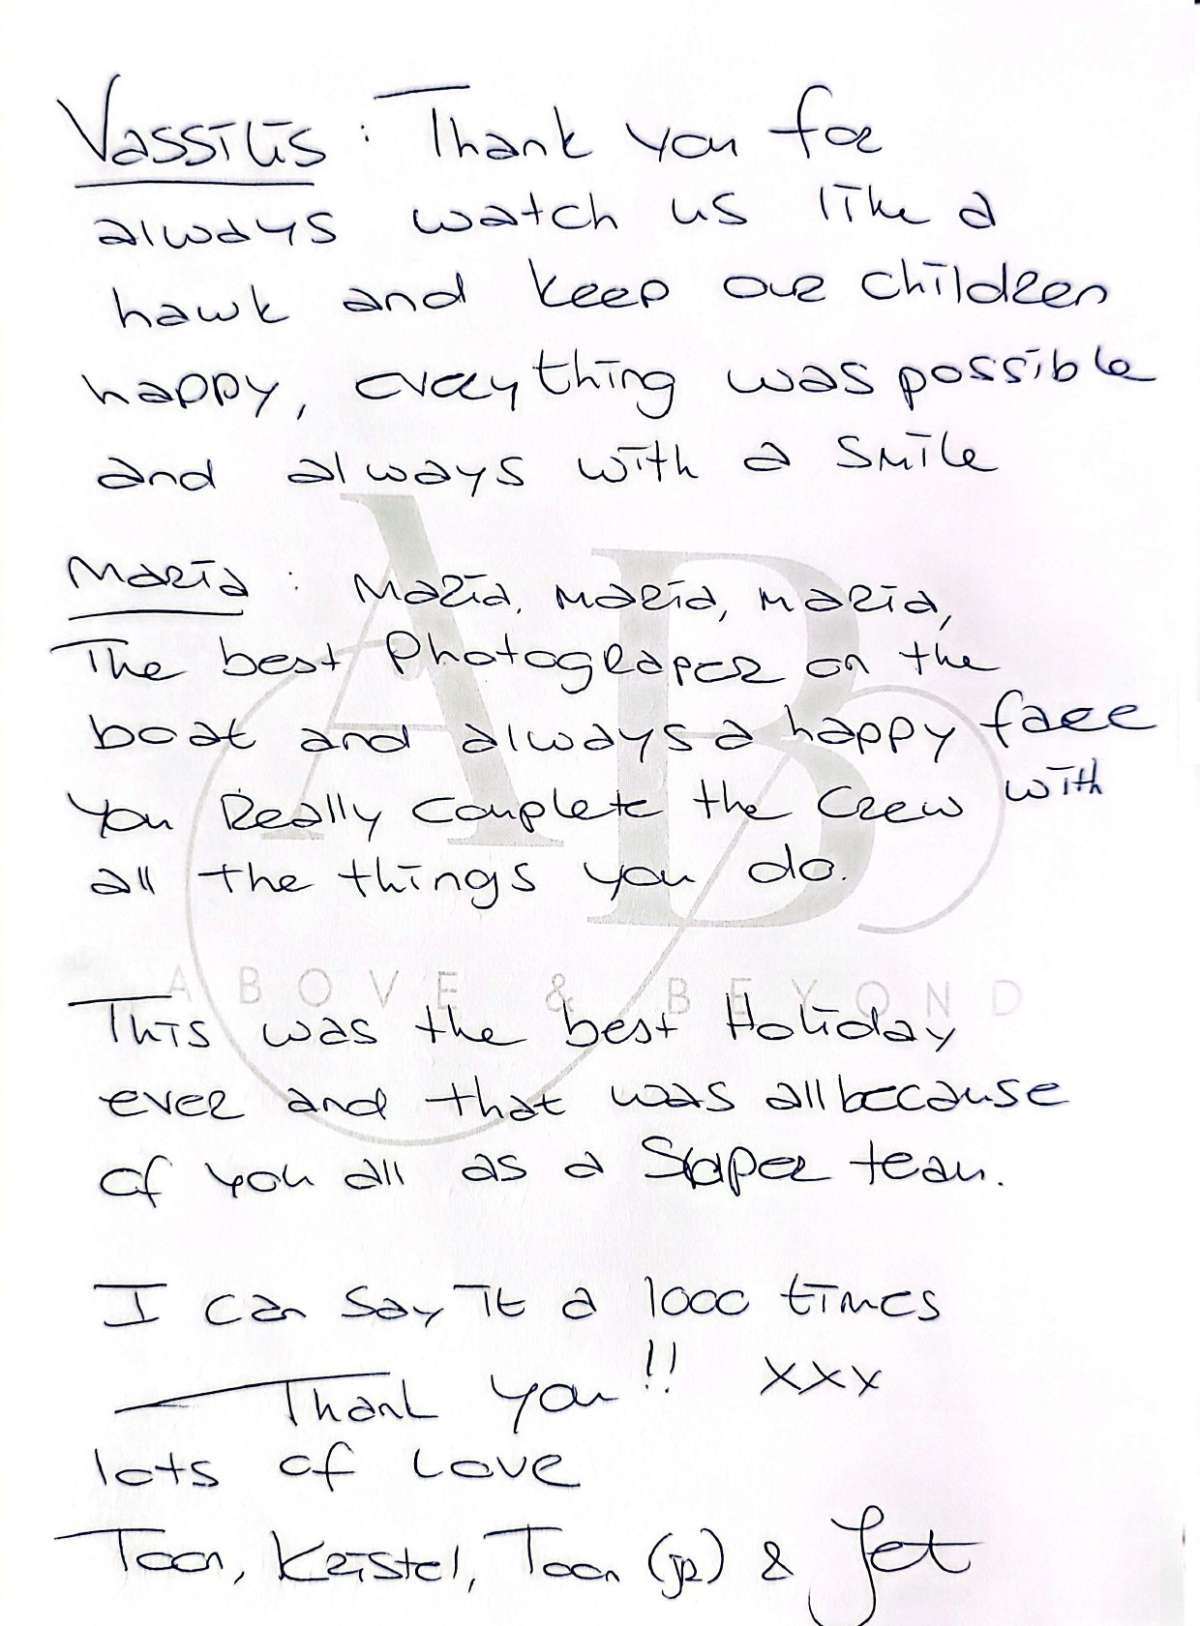 Vassilis : Thank you for
always watch us like a
hawk and keep our children
happy, everything was possible
and always with a smile
Maria : Maria, Maria, Maria,
The best Photograper on the
boat and always a happy face
you Really complete the Crew with
all the things you do.
AB
ABOVE & BEYOND
This was the best Holiday
ever and that was all because
of you all as a Super team.
I can say it a 1000 times
Thank you !! xxx
lots of Love
Toon, Kristel, Toon (jr) & Jet